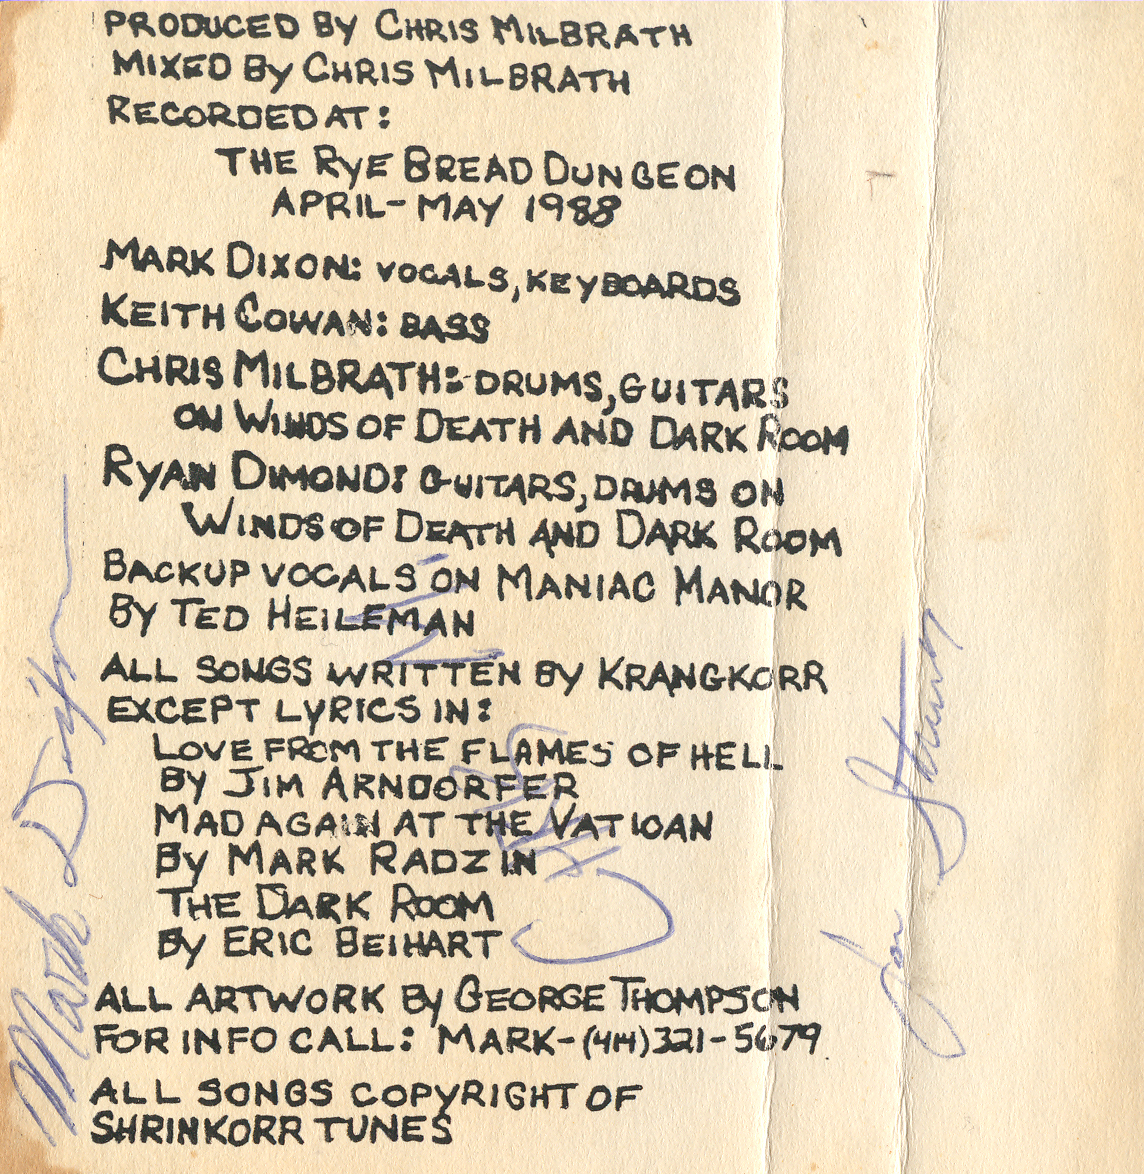 PRODUCED BY CHRIS MILBRATH
MIXED BY CHRIS MILBRATH
RECORDED AT:
THE RYE BREAD DUNGEON
APRIL-MAY 1988
MARK DIXON: VOCALS, KEYBOARDS
KEITH COWAN: BASS
CHRIS MILBRATH: DRUMS, GUITARS
ON WINDS OF DEATH AND DARK ROOM
RYAN DIMOND: GUITARS, DRUMS ON
WINDS OF DEATH AND DARK ROOM
BACKUP VOCALS ON MANIAC MANOR
BY TED HEILEMAN
ALL SONGS WRITTEN BY KRANGKORR
EXCEPT LYRICS IN:
LOVE FROM THE FLAMES OF HELL
BY JIM ARNDORFER
MAD AGAIN AT THE VATICAN
BY MARK RADZIN
THE DARK ROOM
BY ERIC BEIHART
ALL ARTWORK BY GEORGE THOMPSON
FOR INFO CALL: MARK-(414)321-5679
ALL SONGS COPYRIGHT OF
SHRINKORR TUNES
Mark Dixon